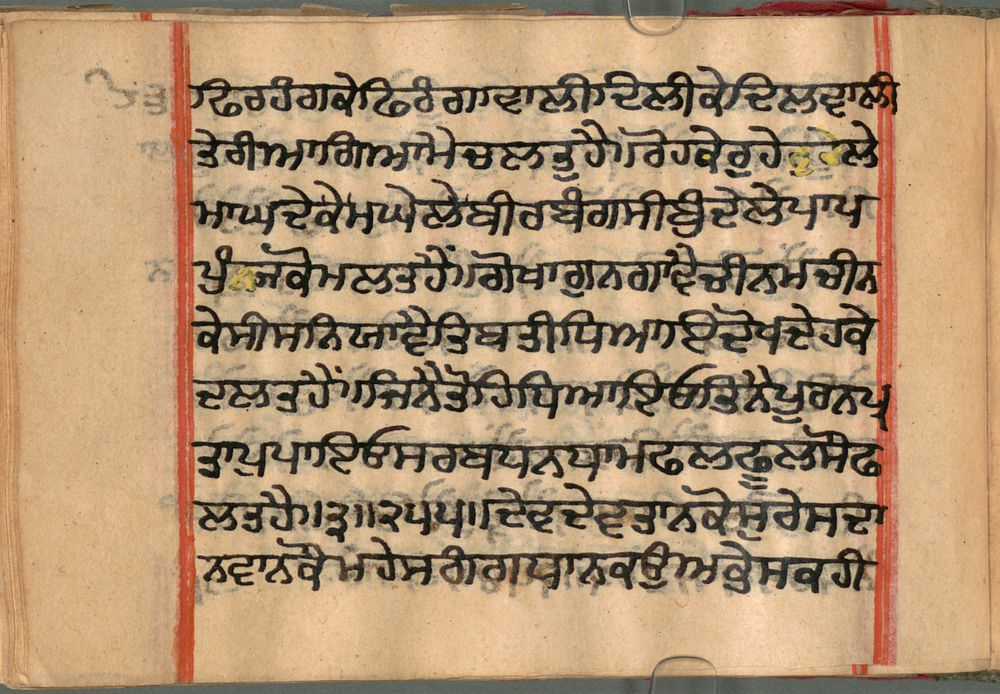 ਫਿਰਹੰਗਕੇਫਿਰੰਗਾਵਾਲੀਦਿਲੀਕੇਦਿਲਵਾਲੀ
ਤੇਰੀਆਗਿਆਮੇਚਲਤੁਹੈ॥ਰੋਹਕੇਰੁਹੇਲੇ
ਮਾਘਦੇਕੇਮਘੇਲੇਬੀਰਬੰਗਸੀਬੁੰਦੇਲੇਪਾਪ
ਪੁੰਜਕੋਮਲਤਹੈਂ॥ਗੋਖਾਗੁਨਗਾਵੈਚੀਨਮਚੀਨ
ਕੇਸੀਸਨਿਯਾਵੈਤਿਬਤੀਧਿਆਇਦੋਖਦੇਹਕੇ
ਦਲਤਹੈਂ॥ਜਿਨੈਤੋਹਿਧਿਆਇਓਤਿਨੈਪੂਰਨਪ੍ਰ
ਤਾਪੁਪਾਇਓਸਰਬਧਨਧਾਮਫਲਫੂਲਸੋਫ
ਲਤਹੈ॥੩॥੨੫੫॥ਦੇਵਦੇਵਤਾਨਕੋਸੁਰੇਸਦਾ
ਨਵਾਨਕੌਮਹੇਸਗੰਗਧਾਨਕਉਅਭੇਸਕਹੀ